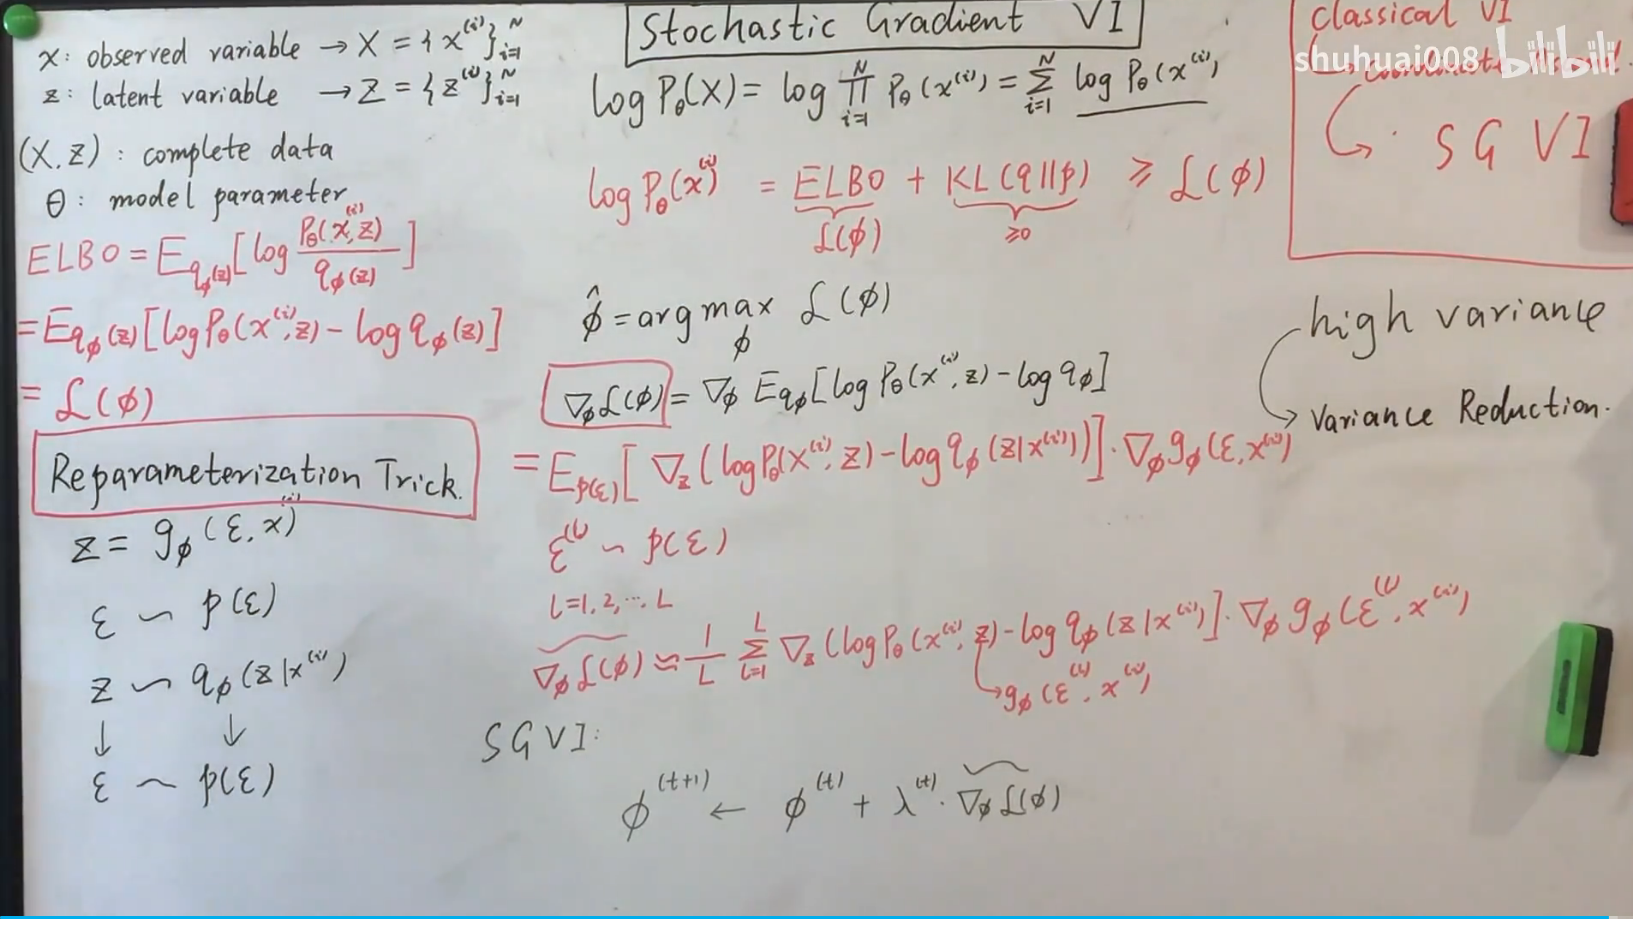 x: observed variable → X = {x^(i)}_{i=1}^N
z: latent variable → Z = {z^(i)}_{i=1}^N
(X, Z): complete data
θ: model parameter
ELBO = E_{q_φ(z)}[log P_θ(x^(i), z) / q_φ(z)]
= E_{q_φ(z)}[log P_θ(x^(i), z) - log q_φ(z)]
= L(φ)
Reparameterization Trick.
z = g_φ(ε, x^(i))
ε ~ p(ε)
z ~ q_φ(z|x^(i))
↓ ↓
ε ~ p(ε)
Stochastic Gradient VI
log P_θ(X) = log ∏_{i=1}^N P_θ(x^(i)) = Σ_{i=1}^N log P_θ(x^(i))
log P_θ(x^(i)) = ELBO + KL(q||p) ≥ L(φ)
L(φ) ≥0
φ̂ = arg max_φ L(φ)
∇_φ L(φ) = ∇_φ E_{q_φ}[log P_θ(x^(i), z) - log q_φ]
= E_{p(ε)}[∇_z (log P_θ(x^(i), z) - log q_φ(z|x^(i)))] · ∇_φ g_φ(ε, x^(i))
ε^(l) ~ p(ε)
l=1,2,…,L
∇_φ L(φ) ≈ 1/L Σ_{l=1}^L ∇_z (log P_θ(x^(i), z) - log q_φ(z|x^(i))] · ∇_φ g_φ(ε^(l), x^(i))
→ g_φ(ε^(l), x^(i))
SGVI:
φ^(t+1) ← φ^(t) + λ^(t) · ∇_φ L(φ)
Classical VI
shuhuai008 bilibili
SGVI
high variance
→ Variance Reduction.